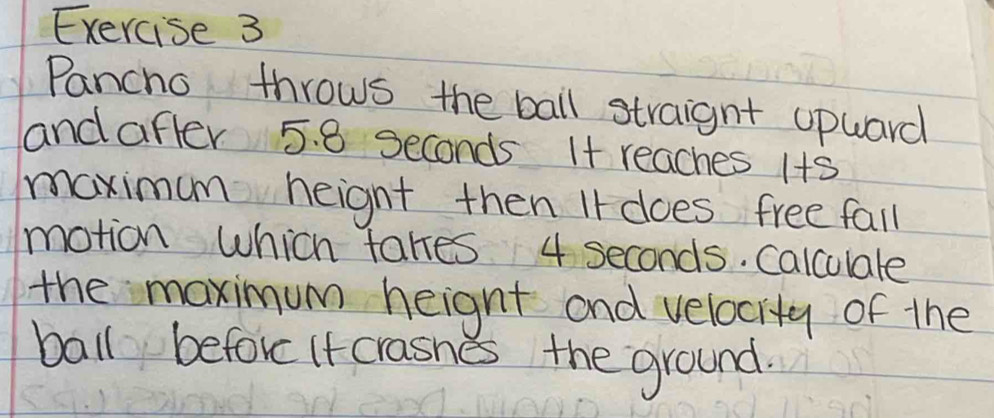 Exercise 3
Pancho throws the ball straight upward
and after 5.8 seconds It reaches Its
maximum height then It does free fall
motion which takes 4 seconds. Calculate
the maximum height and velocity of the
ball before it crashes the ground.